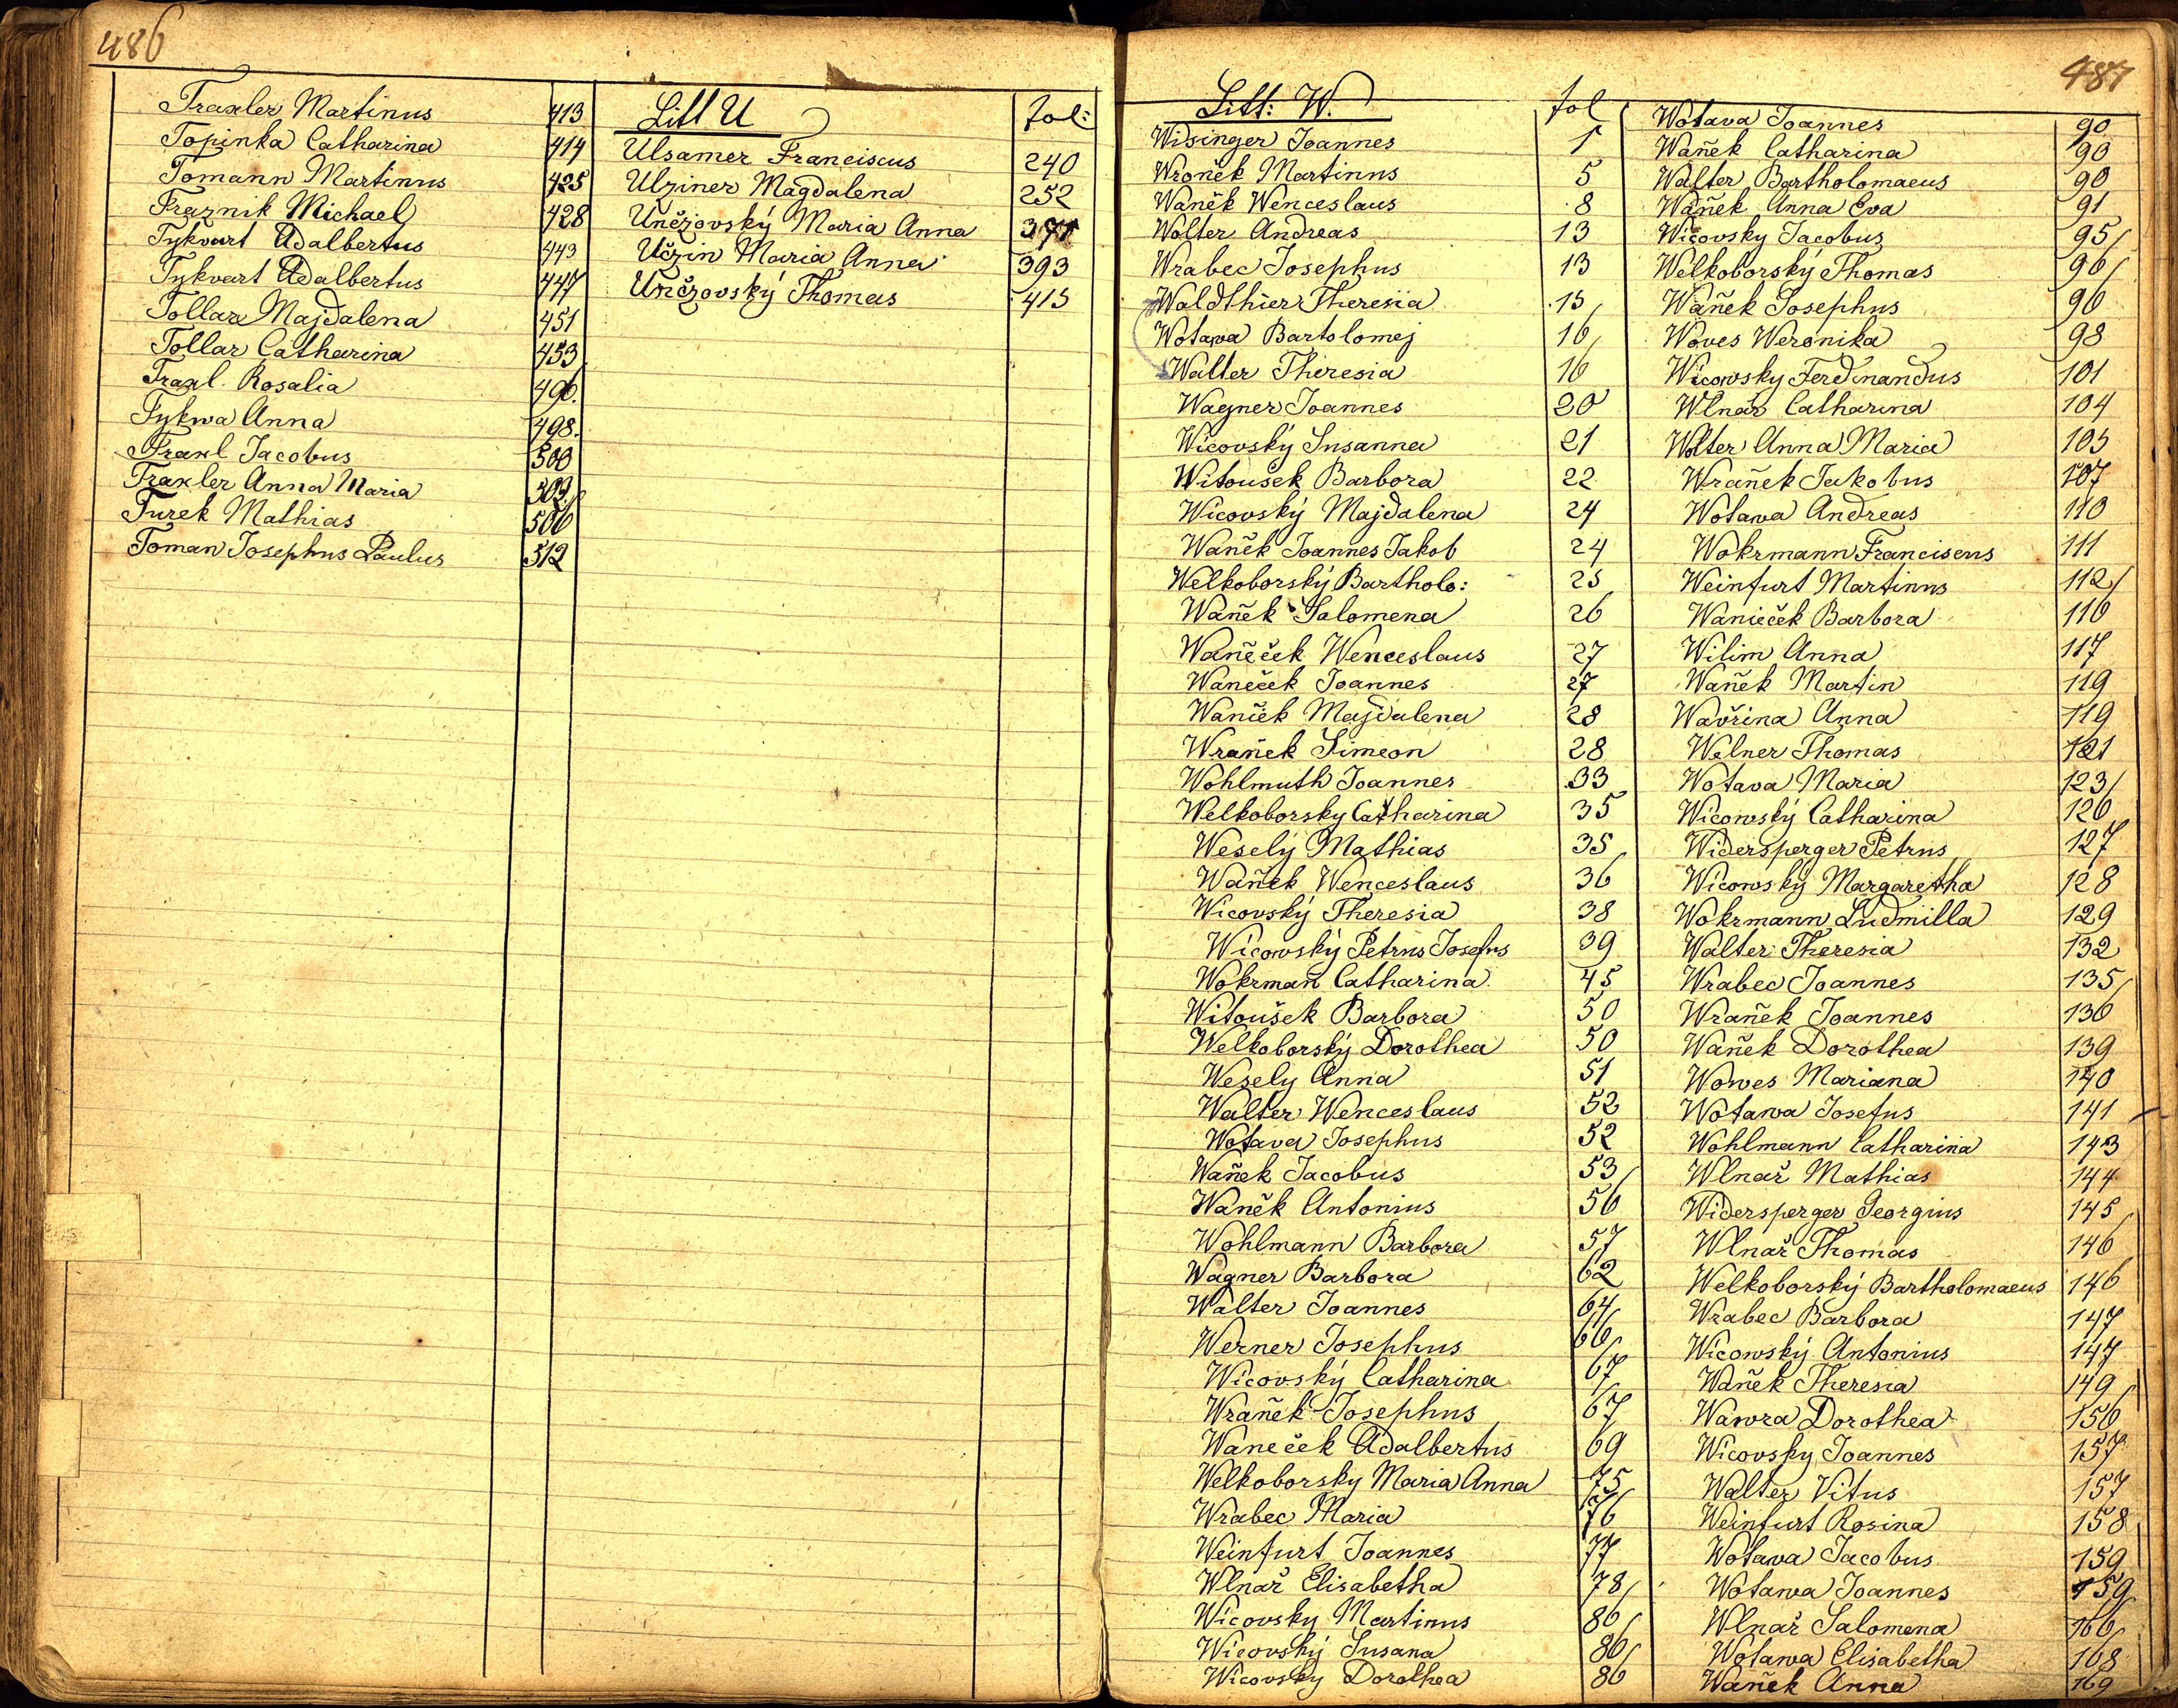 486
Traxler Martinus 413
Topinka Catharina 414
Tomann Martinus 425
Traznik Michael 428
Tykvart Adalbertus 443
Tykvart Adalbertus 447
Tollar Majdalena 451
Tollar Catharina 453
Traxl Rosalia 496.
Tykwa Anna 498.
Traxl Jacobus 500
Traxler Anna Maria 503
Turek Mathias 506
Toman Josephus Paulus 512
Litt U fol:
Ulsamer Franciscus 240
Ulziner Magdalena 252
Unčzovský Maria Anna 371
Učzin Maria Anna 393
Unčzovský Thomas 415
487
Litt: W. fol
Widinger Joannes 1
Wroněk Martinus 5
Waněk Wenceslaus 8
Wolter Andreas 13
Wrabec Josephus 13
Waldthier Theresia 15
Wotawa Bartolomej 16
Walter Theresia 16
Wagner Joannes 20
Wicovský Susanna 21
Witoušek Barbora 22
Wicovský Majdalena 24
Waněk Joannes Jakob 24
Welkoborský Bartholo: 25
Waněk Salomena 26
Waněček Wenceslaus 27
Waneček Joannes 27
Waněk Majdalena 28
Wraněk Simeon 28
Wohlmuth Joannes 33
Welkoborsky Catharina 35
Weselý Mathias 35
Waněk Wenceslaus 36
Wicovský Theresia 38
Wicowský Petrus Josefus 39
Wokrman Catharina 45
Witoušek Barbora 50
Welkoborský Dorothea 50
Wesely Anna 51
Walter Wenceslaus 52
Wotava Josephus 52
Waněk Jacobus 53
Waněk Antonius 56
Wohlmann Barbora 57
Wagner Barbora 62
Walter Joannes 64
Werner Josephus 66
Wicovský Catharina 67
Wraněk Josephus 67
Waneček Adalbertus 69
Welkoborsky Maria Anna 75
Wrabec Maria 76
Weinfurt Joannes 77
Wlnař Elisabetha 78
Wicovsky Martinus 86
Wicovský Susana 86
Wicovsky Dorothea 86
Wotava Joannes 90
Waněk Catharina 90
Walter Bartholomaeus 90
Waněk Anna Eva 91
Wicovsky Jacobus 95
Welkoborský Thomas 96
Waněk Josephus 96
Woves Weronika 98
Wicowsky Ferdinandus 101
Wlnař Catharina 104
Wolter Anna Maria 105
Wraněk Jakobus 107
Wotawa Andreas 110
Wokrmann Franciscus 111
Weinfurt Martinus 112
Wanieček Barbora 116
Wilim Anna 117
Waněk Martin 119
Wavřina Anna 119
Welner Thomas 121
Wotava Maria 123
Wicowský Catharina 126
Widersperger Petrus 127
Wicowský Margaretha 128
Wokrmann Ludmilla 129
Walter Theresia 132
Wrabec Joannes 135
Wraněk Joannes 136
Waněk Dorothea 139
Wowes Mariana 140
Wotawa Josefus 141
Wohlmann Catharina 143
Wlnař Mathias 144
Widersperger Georgius 145
Wlnař Thomas 146
Welkoborský Bartholomaeus 146
Wrabec Barbora 147
Wicowský Antonius 147
Waněk Theresia 149
Wawra Dorothea 156
Wicovsky Joannes 157
Walter Vitus 157
Weinfurt Rosina 158
Wotawa Jacobus 159
Wotawa Joannes 159
Wlnař Salomena 166
Wotawa Elisabetha 168
Waněk Anna 169